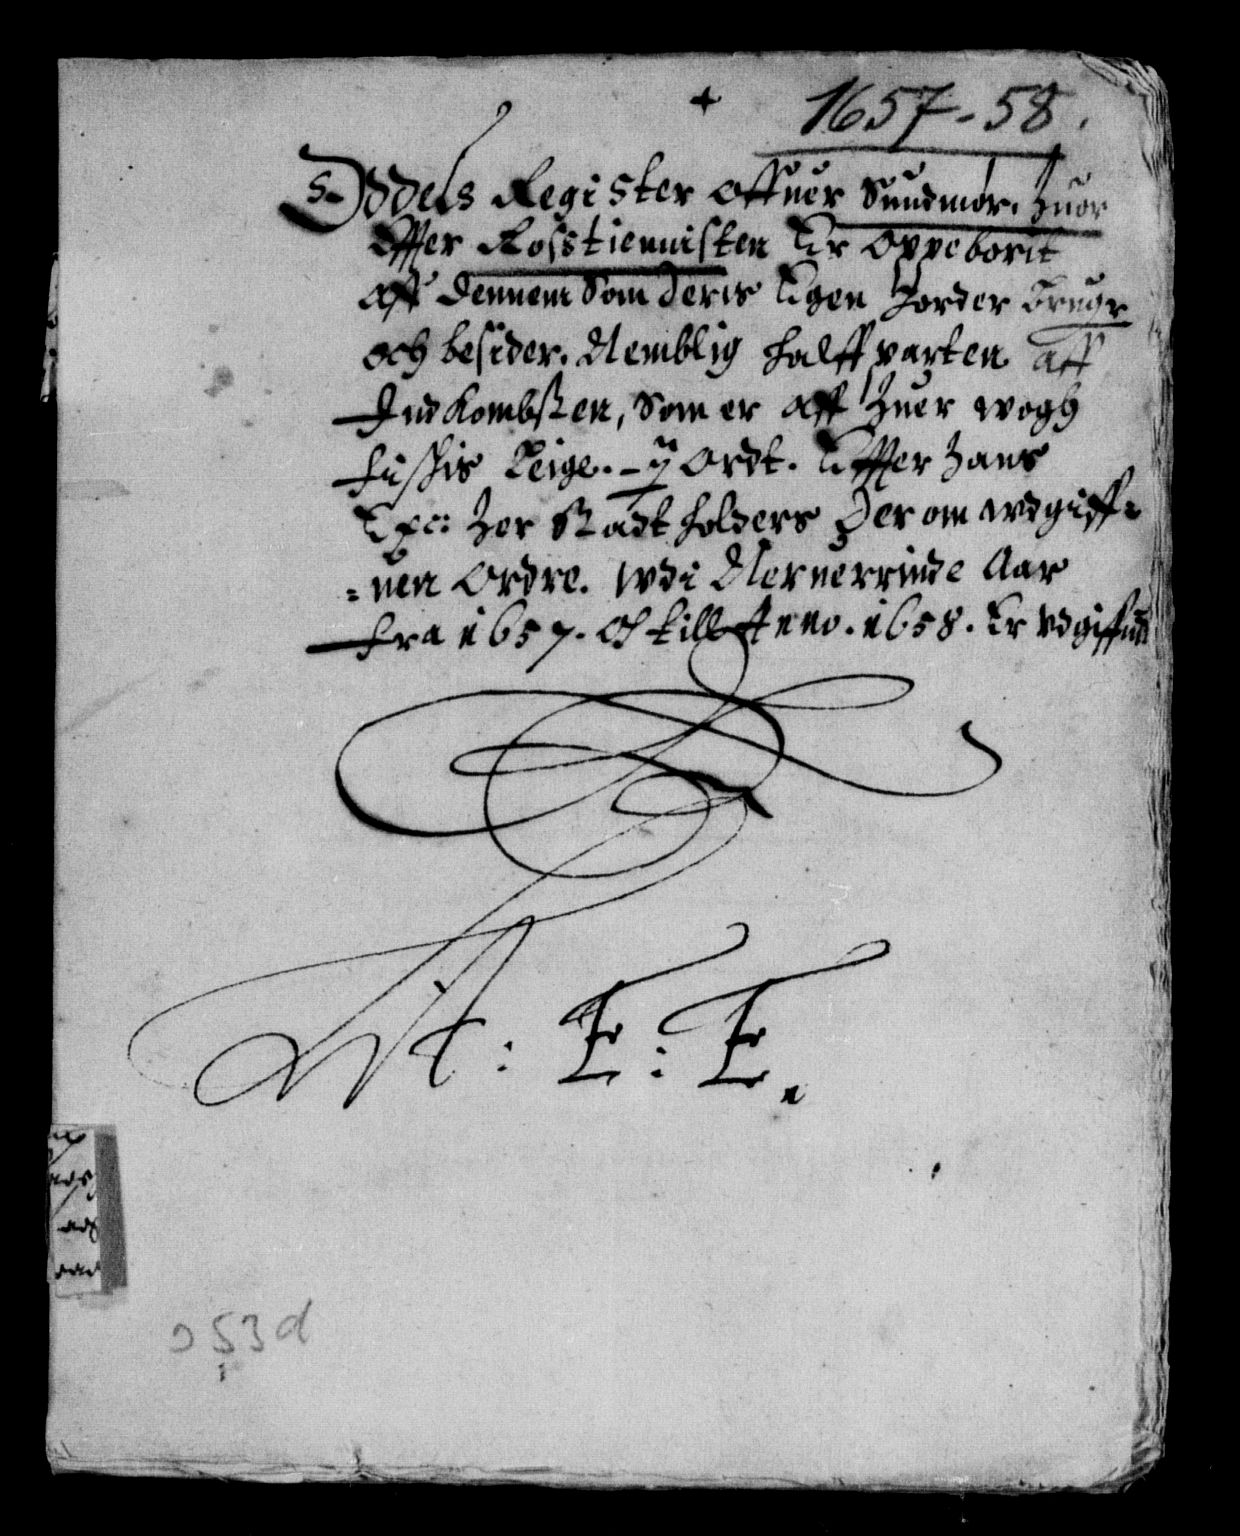 1657-58.
Oddels Register Offuer Sundmør. Huor
Effter Rosstiennisten Er Oppeborit
aff dennem Som deris Egen Jorder brugr
och besider. Nemblig halffparten aff
Indkombsten, Som er aff Huer wogh
fiskis Leige. - ij Ordt. Effter Hans
Exc: Her Stadtholders Derom wdgiff=
=nen Ordre. wdi Neruerrinde Aar
fra 1657. Och till Anno. 1658. Er
A: E: E.
53 d